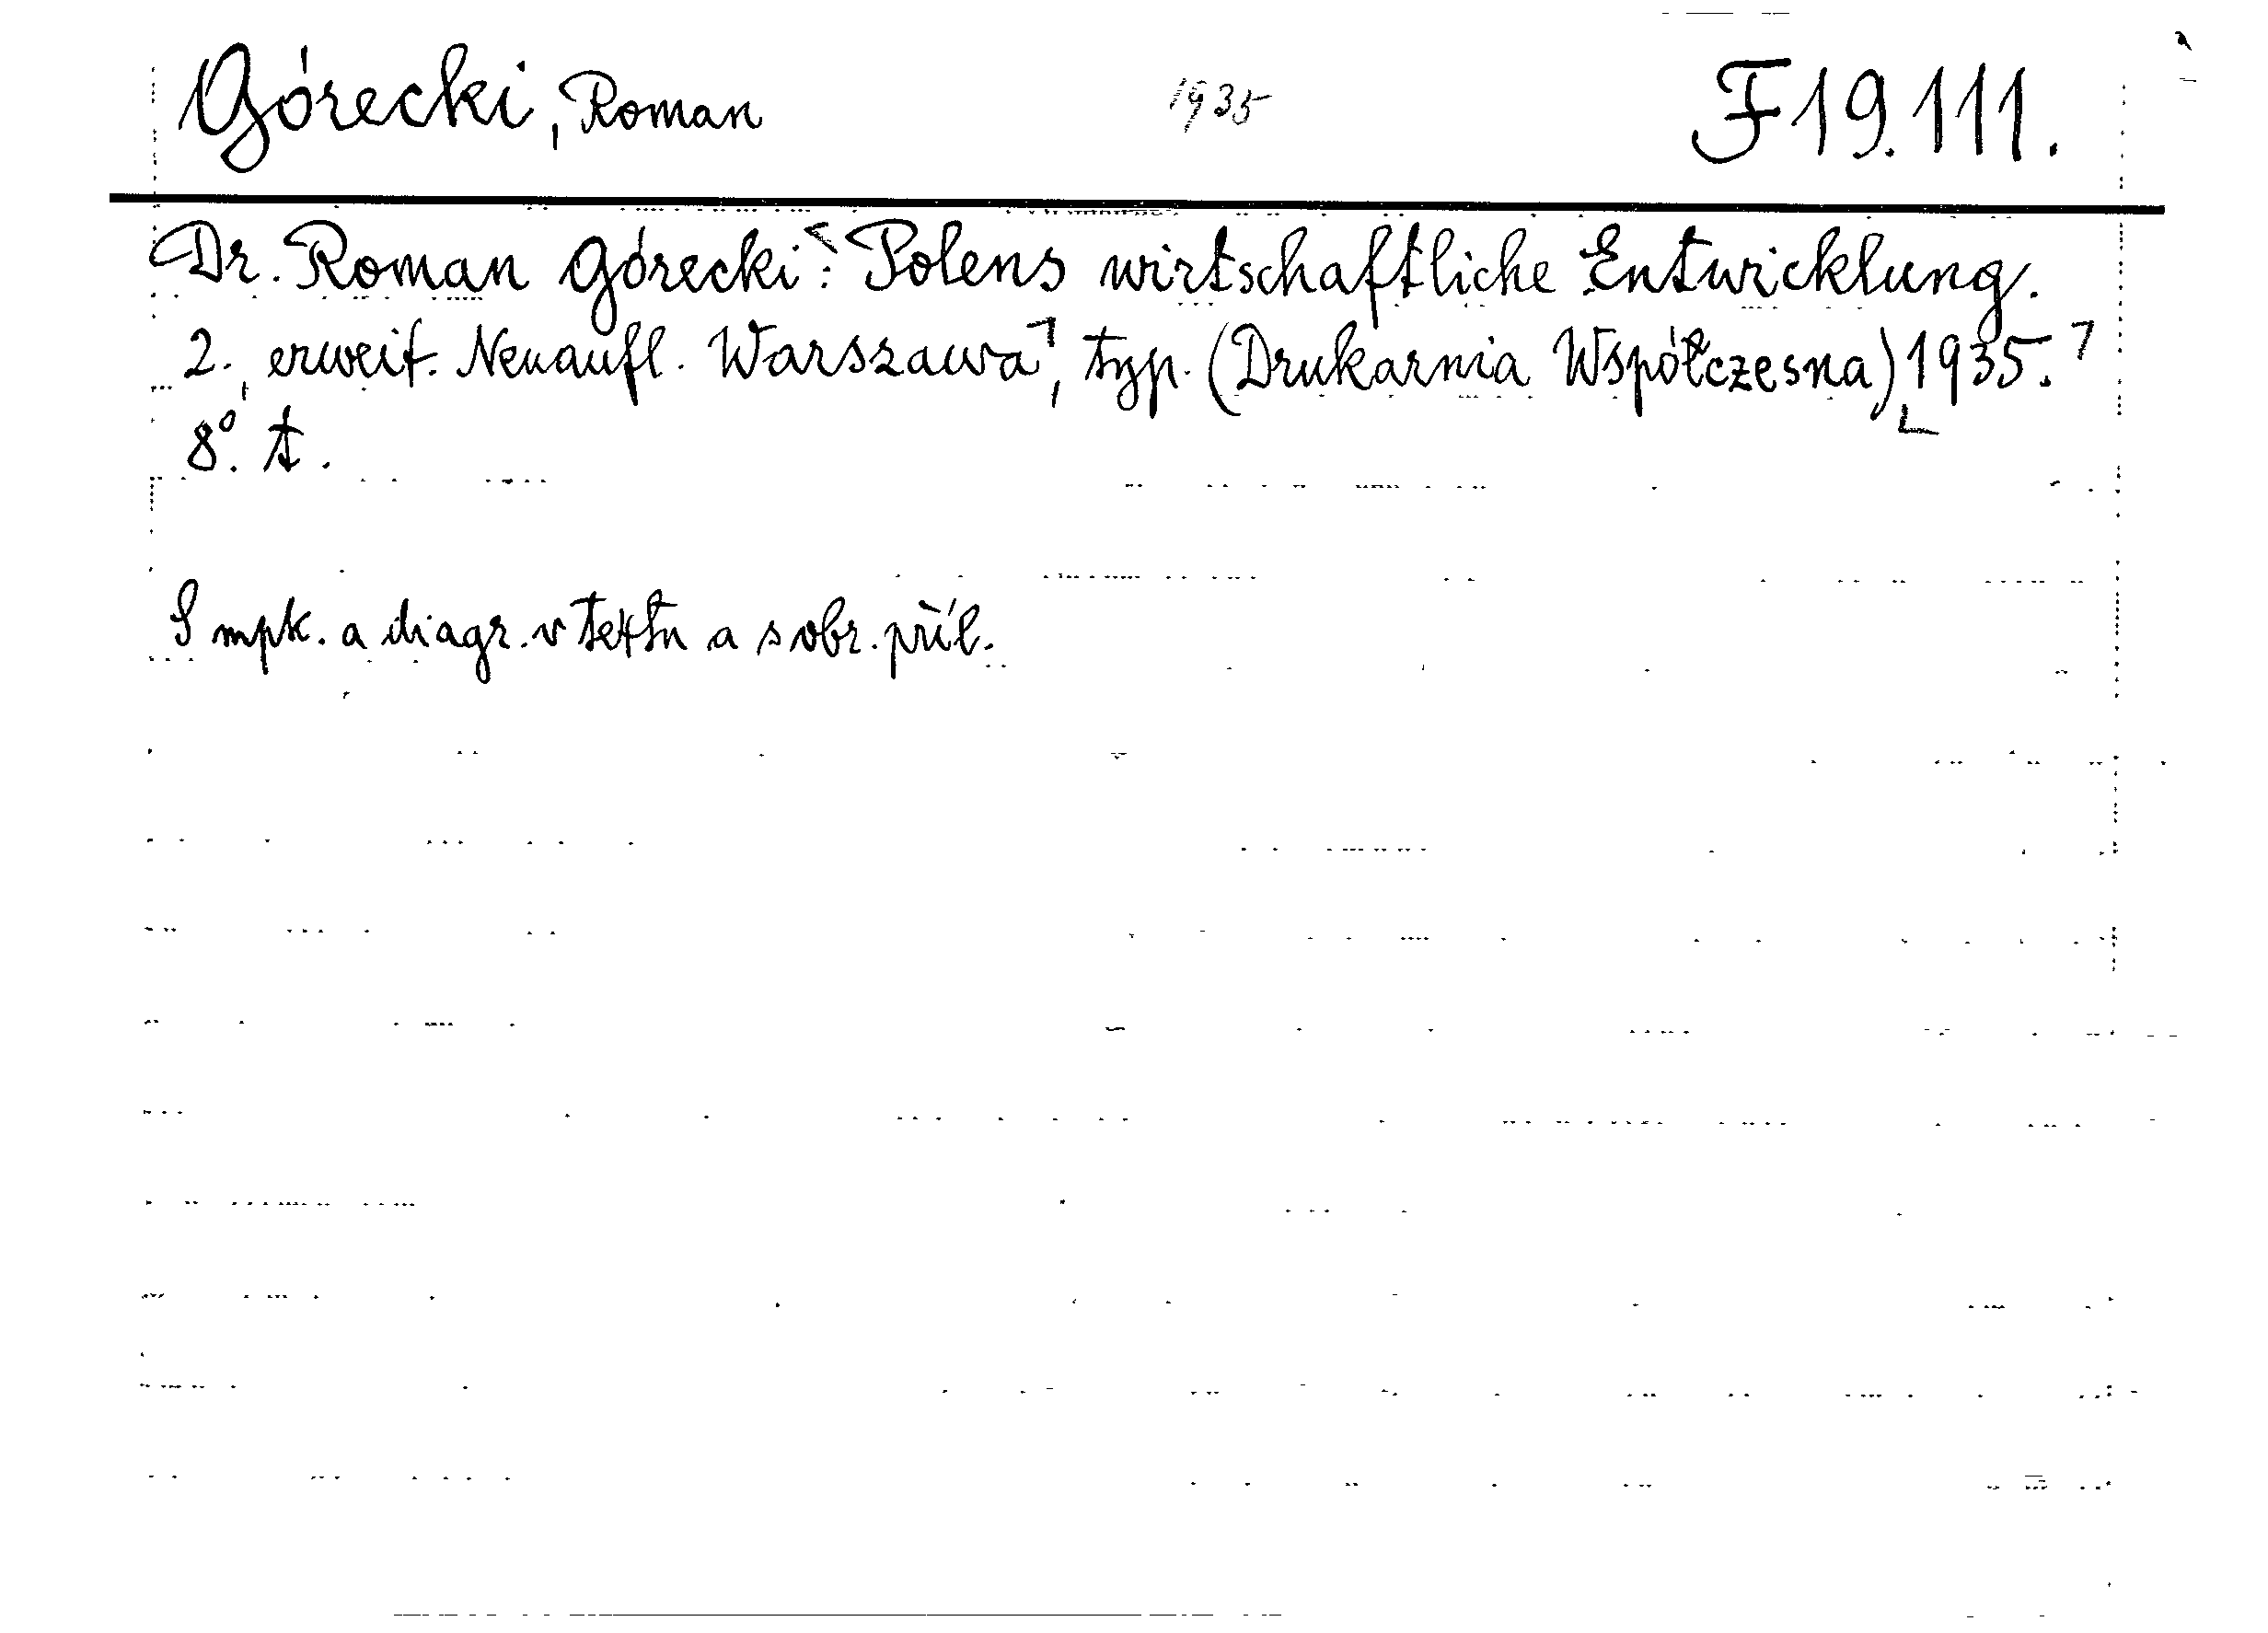 Górecki, Roman 1935 F 19.111.
Dr. Roman Górecki: Polens wirtschaftliche Entwicklung.
2., erweit. Neuaufl. Warszawa, typ. (Drukarnia Współczesna) 1935.
8°. t.
S mpk. a diagr. v textu a s obr. příl.